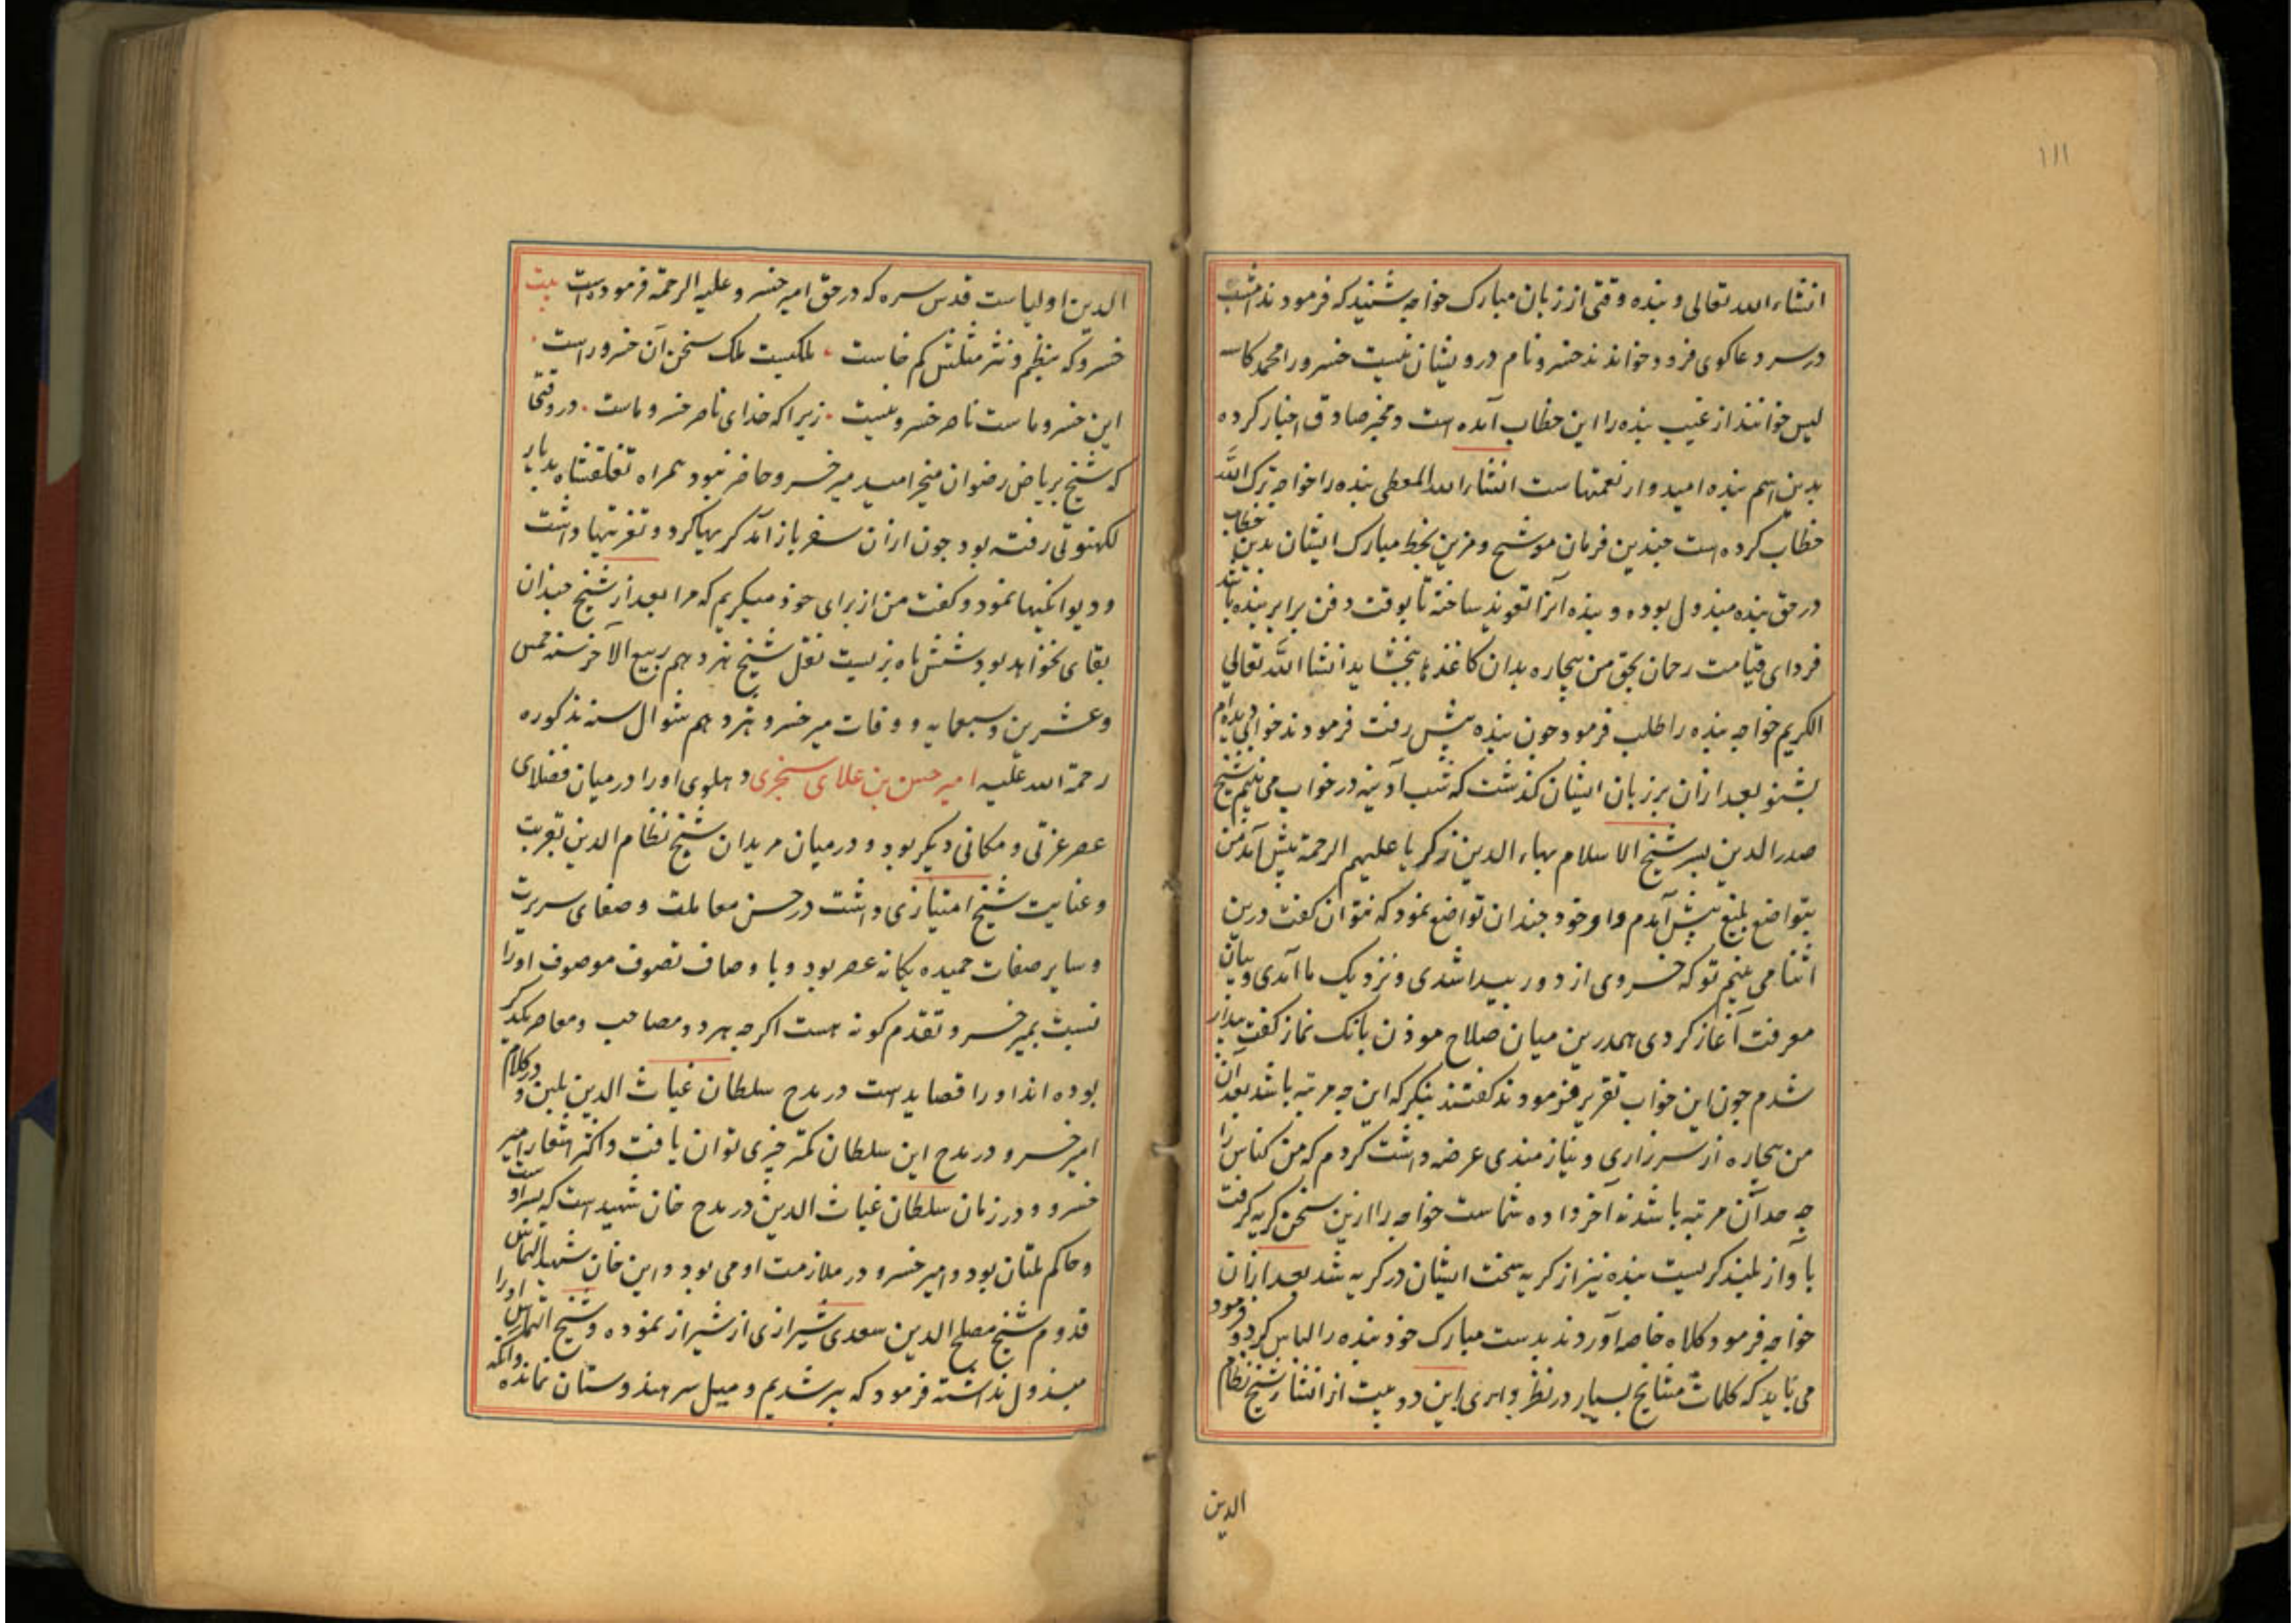 ۱۱۱
انشاء الله تعالی و بنده وقتی از زبان مبارک خواجه شنید که فرمودند امشب
در سر دعاکوی فرود خواندند خسرو نام درویشان نیست خسرو را محمد کاسه
لیس خوانند از غیب بنده را این خطاب آمده است و مخبر صادق اخبار کرده
بدین اسم بنده امیدوار نعمتهاست انشاء الله المعطی بنده را خواجه ترک الله
خطاب کرده است چندین فرمان موشح و مزین بخط مبارک ایشان بدین خطاب
در حق بنده مبذول بوده و بنده آنرا تعویذ ساخته تا بوقت دفن برابر بنده باشد
فردای قیامت رحمان بحق من بیچاره بدان کاغذها بخشاید انشا الله تعالی
الکریم خواجه بنده را طلب فرمود چون بنده پیش رفت فرمودند خوابی دیده‌ام
بشنو بعد ازان بر زبان ایشان گذشت که شب آدینه در خواب می بینم شیخ
صدر الدین پسر شیخ الاسلام بهاء الدین زکریا علیهم الرحمة پیش آمد من
بتواضع بلیغ پیش آمدم و او خود چندان تواضع نمود که نتوان کفت درین
اثنا می بینم تو که خسروی از دور پیدا شدی و نزدیک ما آمدی و بیان
معرفت آغاز کردی همدرین میان صلاح موذن بانک نماز کفت بیدار
شدم چون این خواب تقریر فرمودند کفتند بنکر که این چه مرتبه باشد بعد آن
من بیچاره از سر زاری و نیازمندی عرضه داشت کردم که من کناس را
چه حد آن مرتبه باشد نه آخر داده شماست خواجه را ازین سخن کریه کرفت
با آواز بلند کریست بنده نیز از کریه سخت ایشان در کریه شد بعد ازان
خواجه فرمود کلاه خاصه آوردند بدست مبارک خود بنده را الباس کرد و فرمود
می باید که کلمات مشایخ بسیار در نظر داری این دو بیت از انشاء شیخ نظام
الدین
الدین اولیاست قدس سره که در حق امیر خسرو علیه الرحمة فرموده است بیت
خسرو که بنظم و نثر مثلش کم خاست ملکیست ملک سخن آن خسرو راست
این خسرو ماست ناصر خسرو نیست زیرا که خدای ناصر خسرو ماست در وقتی
که شیخ بریاض رضوان میخرامید میر خسرو حاضر نبود همراه تغلقشاه بدیار
لکهنوتی رفته بود چون ازان سفر باز آمد کریها کرد و تعزیتها داشت
و دیوانکیها نمود و کفت من از برای خود میکریم که مرا بعد از شیخ چندان
بقای نخواهد بود شش ماه بزیست نقل شیخ هژدهم ربیع الآخر سنه خمس
و عشرین و سبعمایه و وفات میر خسرو هژدهم شوال سنه مذکوره
رحمة الله علیه امیر حسن بن علای سنجری دهلوی او را در میان فضلای
عصر عزتی و مکانی دیکر بود و در میان مریدان شیخ نظام الدین بقربت
و عنایت شیخ امتیازی داشت در حسن معاملت و صفای سریرت
و سایر صفات حمیده یکانه عصر بود و با وصاف تصوف موصوف او را
نسبت بمیر خسرو تقدم کونه هست اکرچه هر دو مصاحب و معاصر یکدیکر
بوده اند او را قصاید است در مدح سلطان غیاث الدین بلبن و در کلام
امیر خسرو در مدح این سلطان کمتر چیزی توان یافت و اکثر اشعار امیر
خسرو و در زمان سلطان غیاث الدین در مدح خان شهید است که پسر او ست
و حاکم ملتان بود و امیر خسرو در ملازمت او می بود و این خان شهید التماس
قدوم شیخ مصلح الدین سعدی شیرازی از شیراز نموده و شیخ التماس او را
مبذول نداشته فرمود که پیر شدیم و میل سر هندوستان نمانده و آنکه